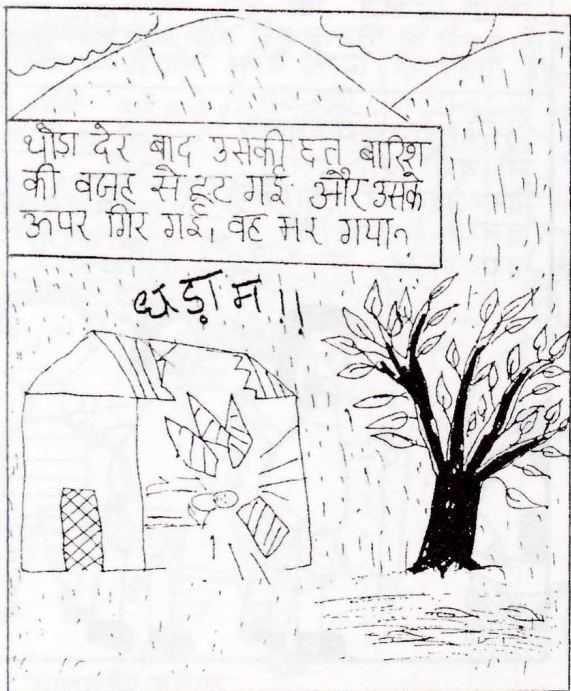 थोडा देर बाद उसकी छत बारिश
की वजह से टूट गई और उसके
ऊपर गिर गई, वह मर गया।
धड़ाम!!